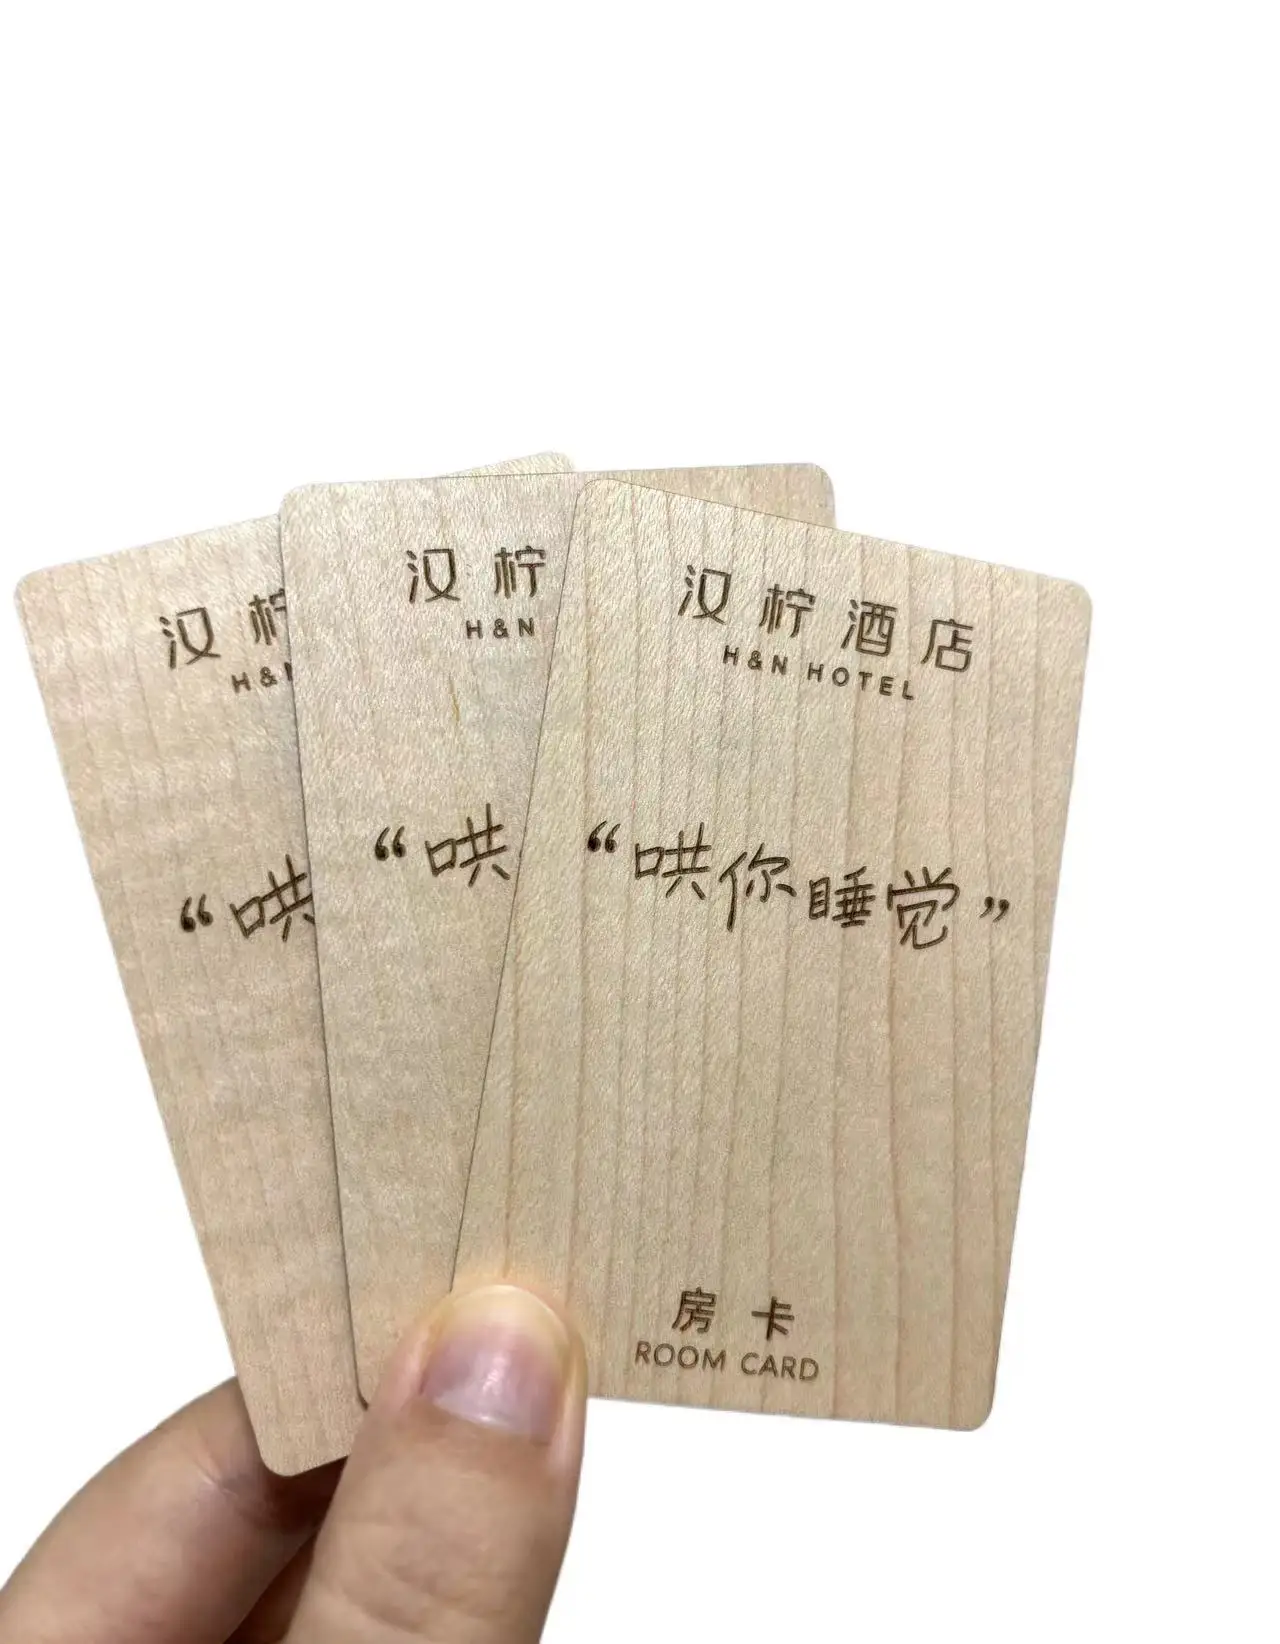 汉柠
H&N
“哄
汉柠
H&N
“哄
汉柠酒店
H&N HOTEL
“哄你睡觉”
房卡
ROOM CARD